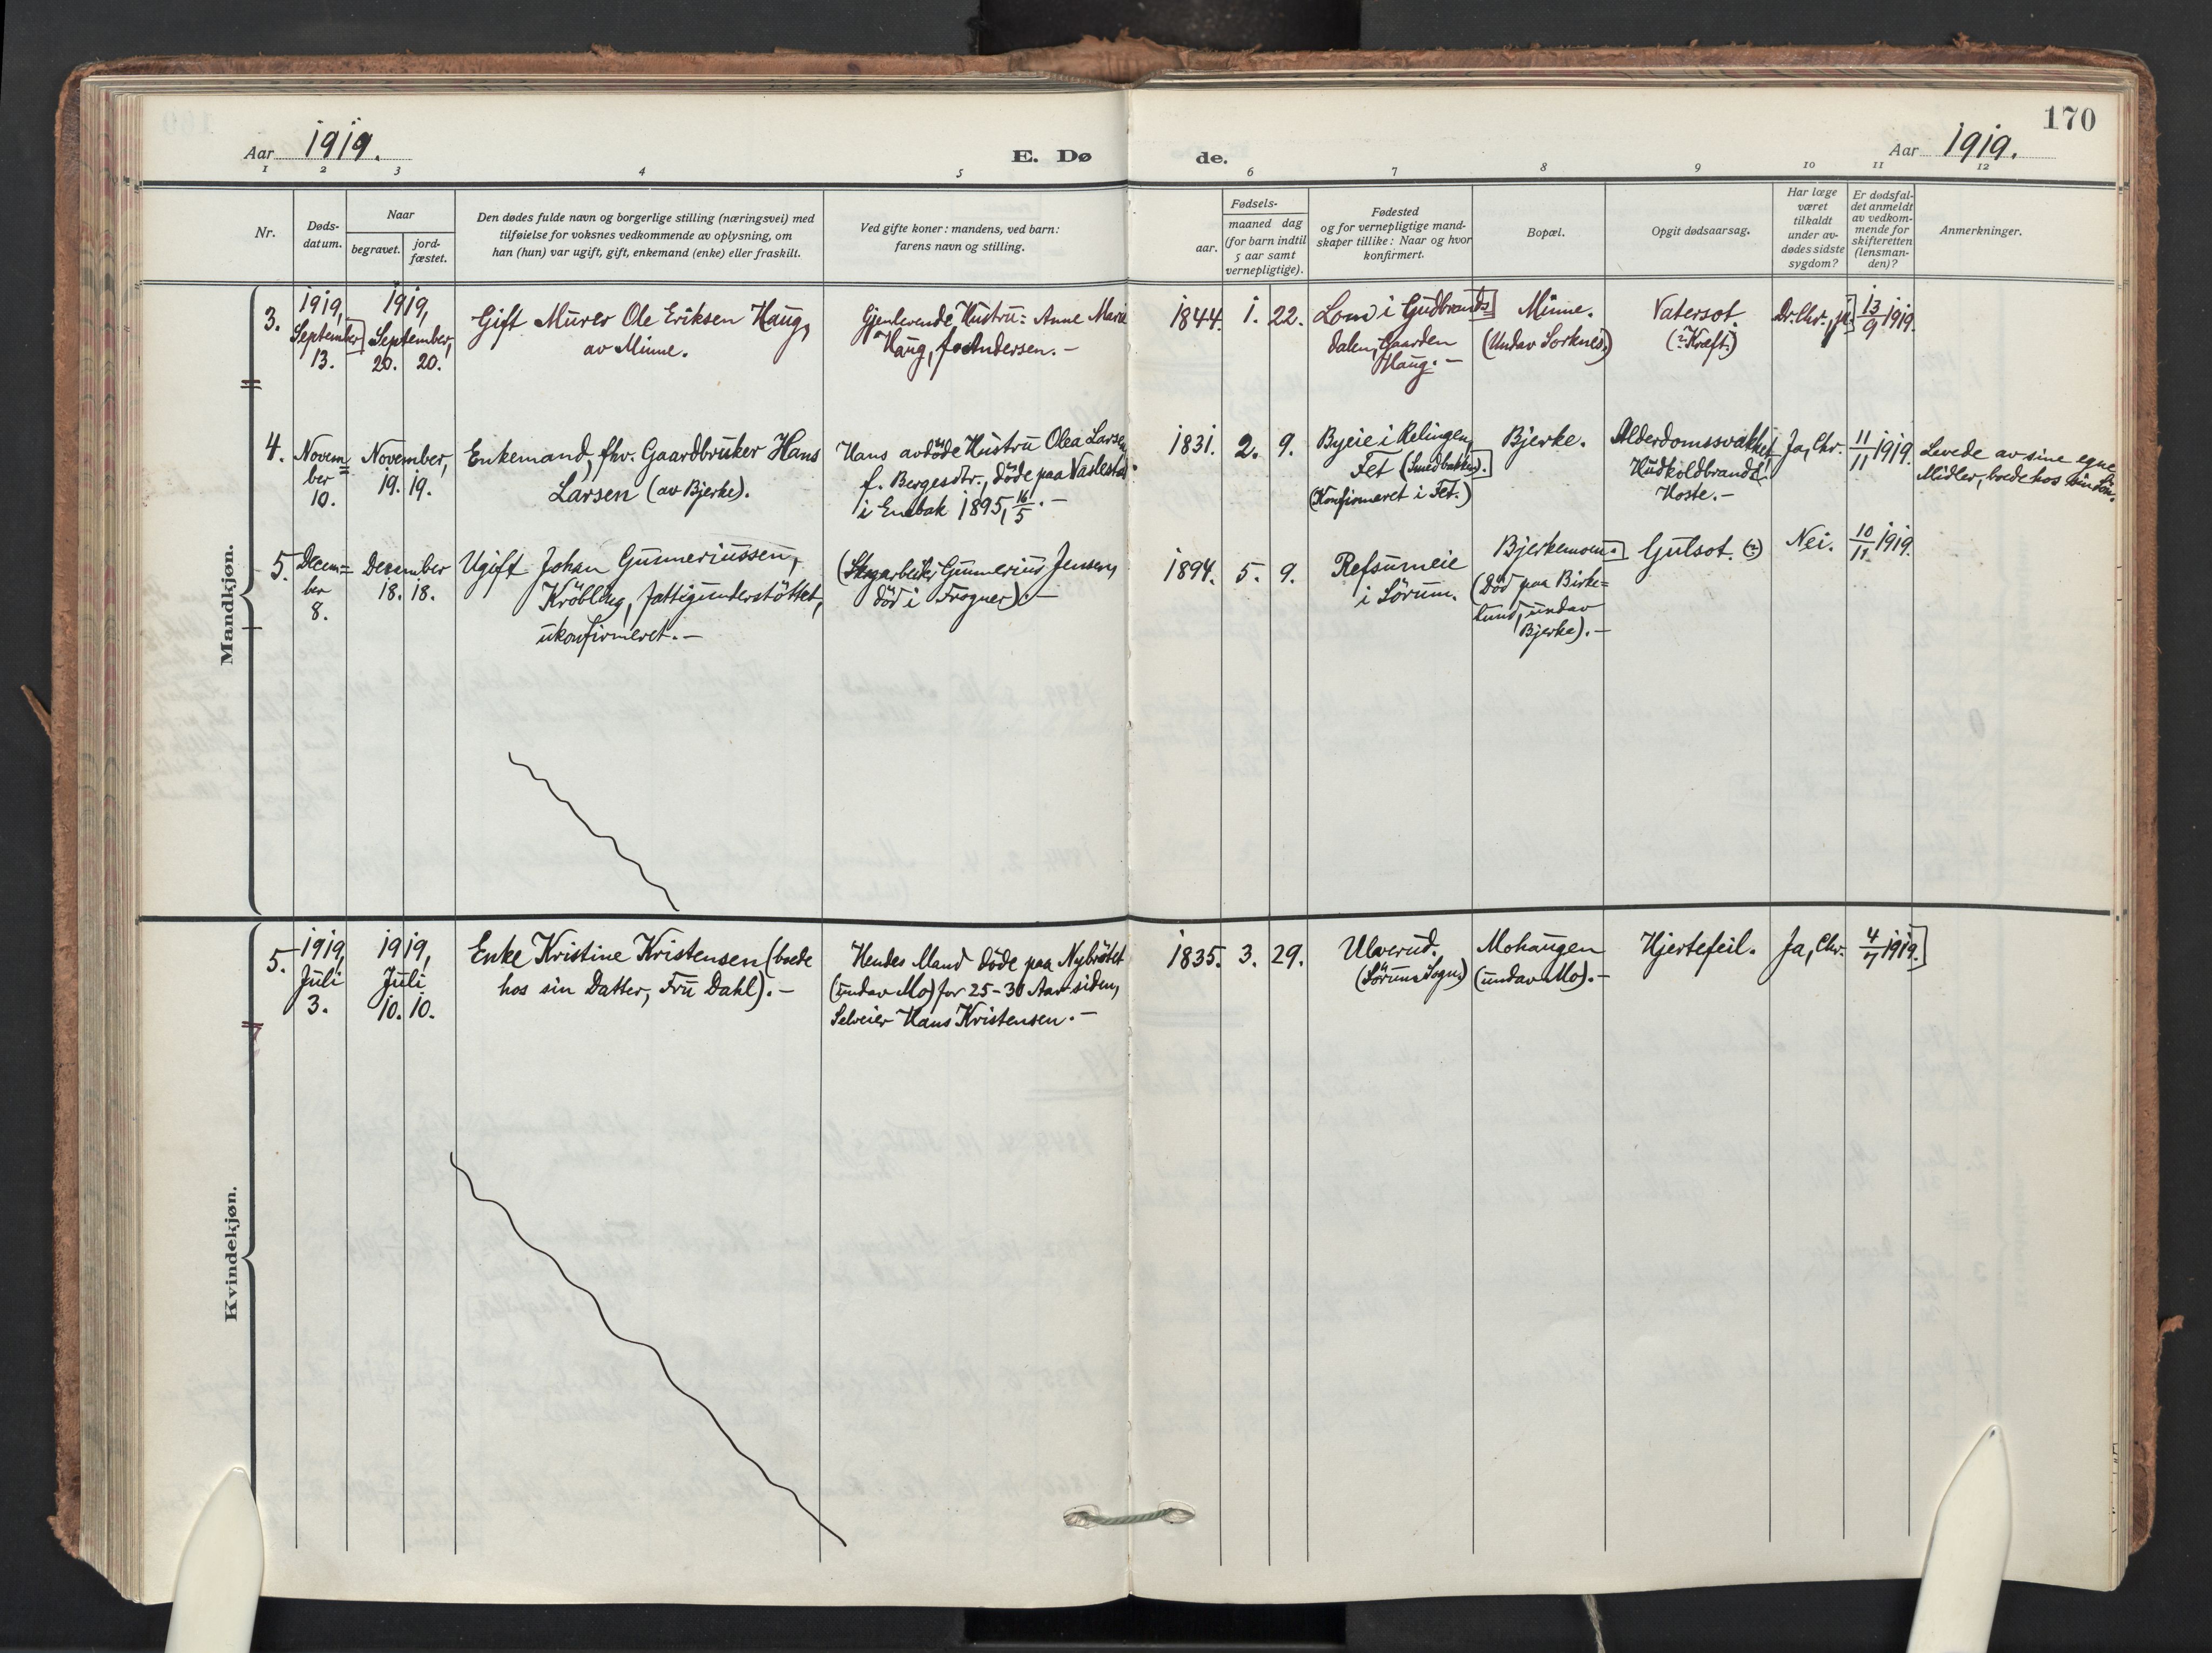 170
Aar 1919.
E. Døde.
Aar 1919.
1 2 3 4 5 6 7 8 9 10 11 12
Nr.
Døds-
datum.
Naar
begravet.
jord-
fæstet.
Den dødes fulde navn og borgerlige stilling (næringsvei) med
tilføielse for voksnes vedkommende av oplysning, om
han (hun) var ugift, gift, enkemand (enke) eller fraskilt.
Ved gifte koner: mandens, ved barn:
farens navn og stilling.
Fødsels-
aar.
maaned dag
(for barn indtil
5 aar samt
vernepligtige).
Fødested
og for vernepligtige mand-
skaper tillike: Naar og hvor
konfirmert.
Bopæl.
Opgit dødsaarsag.
Har læge
været
tilkaldt
under av-
dødes sidste
sygdom?
Er dødsfal-
det anmeldt
av vedkom-
mende for
skifteretten
(lensman-
den)?
Anmerkninger.
Mandkjøn.
3.
1919,
September
13.
1919,
September,
20. 20.
Gift Murer Ole Eriksen Haug,
av Minne.
Gjenlevende Hustru: Anne Marie
Haug, f. Andersen. —
1844. 1. 22.
Lom i Gudbrands
dalen, Gaarden
Haug. —
Minne.
(Undav Sorknes)
Vatersot.
(? Kræft.)
Dr. Chr., ja.
13/9 1919.
4.
Novem=
ber
10.
November,
19. 19.
Enkemand, fhv. Gaardbruker Hans
Larsen (av Bjerke).
Hans avdöde Hustru Olea Larsen,
f. Bergesdtr., döde paa
i Enebak 1895, 16/5. —
1831. 2. 9.
Byeie i Relingen,
Fet (Smedbakken).
(Konfirmeret i Fet.)
Bjerke.
Alderdomssvakhet,
Hudkoldbrand,
Hoste. —
Ja, Chr.
11/11 1919.
Levede av sine egne
Midler, boede hos sin Sön.
5.
Decem=
ber
8.
December
18. 18.
Ugift Johan Gunneriussen,
Kröbling, fattigunderstöttet,
ukonfirmeret. —
(Skogarbeider Gunnerius Jensen,
död i Frogner). —
1894. 5. 9.
Refsumeie
i Sörum.
Bjerkemoen
(Död paa Birke=
lund, undav
Bjerke). —
Gulsot. (?)
Nei.
10/12 1919.
Kvindekjøn.
5.
1919,
Juli
3.
1919,
Juli
10. 10.
Enke Kristine Kristensen (boede
hos sin Datter, Fru Dahl). —
Hendes Mand döde paa Nybrötet
(undav Mo) for 25-30 Aar siden,
Selveier Hans Kristensen. —
1835. 3. 29.
Ulverud.
(Sörum Sogn)
Mohaugen
(undav Mo). —
Hjertefeil.
Ja, Chr.
4/7 1919.